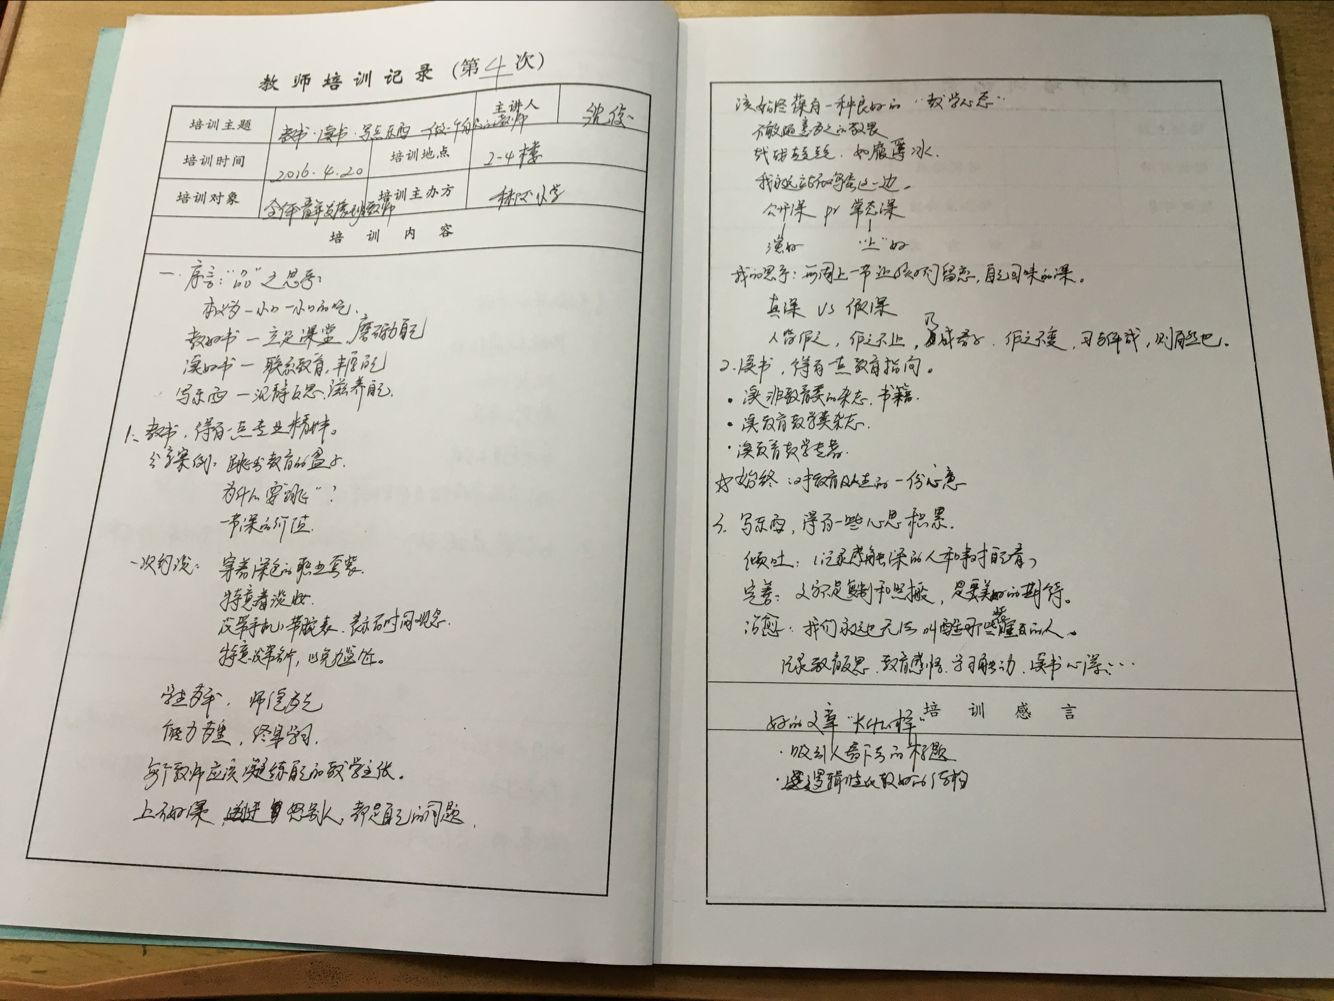 教师培训记录（第4次）
培训主题 教书·读书·写点东西 做一个 的教师 主讲人
培训时间 2016.4.20 培训地点 2-4楼
培训对象 全体青年 教师 培训主办方 小学
培训内容
一、序言：“品”之思考：
本义为一小口一小口的吃.
教好书 — 立足课堂，磨砺自己
读好书 — 联系教育，丰厚自己
写东西 — 沉静反思，滋养自己.
1、教书，得有一点专业精神。
分享案例：跳出教育的盒子.
为什么要“跳”？
一节课的价值.
一次约谈： 穿着深色的职业套装.
特意着淡妆.
没带手机，带腕表，表示有时间观念.
特意没带 ，以免尴尬。
学生为本，师德为先
能力为重，终身学习.
每个教师应该凝练自己的教学主张。
上不好课 怨别人，都是自己的问题.
该始终葆有一种良好的“教学心态”
不敢随意为之的敬畏
战战兢兢，如履薄冰.
我永远站在 这一边。
公开课 pr 常态课
演好 “上”好
我的思考：两周上一节让孩子们留恋，自己回味的课。
真课 VS 假课
人皆作之，作之不止，乃成君子，作之不变，习与体成，则自然也。
2.读书，得有一点教育指向。
·读非教育类的杂志，书籍.
·读教育教学类杂志.
·读教育教学专著.
☆始终 对教育以生的一份心意
3.写东西，得有一些心思积累.
倾吐：（记录接触深的人和事 ）
完善：文字不是复制和照搬，是要美好的期待。
治愈：我们永远无法叫醒那些装睡的人。
记录教育反思、教育感悟、学习触动、读书心得……
培训感言
好的文章“长什么样”
·吸引人看下去的标题
·逻辑性比较好的结构